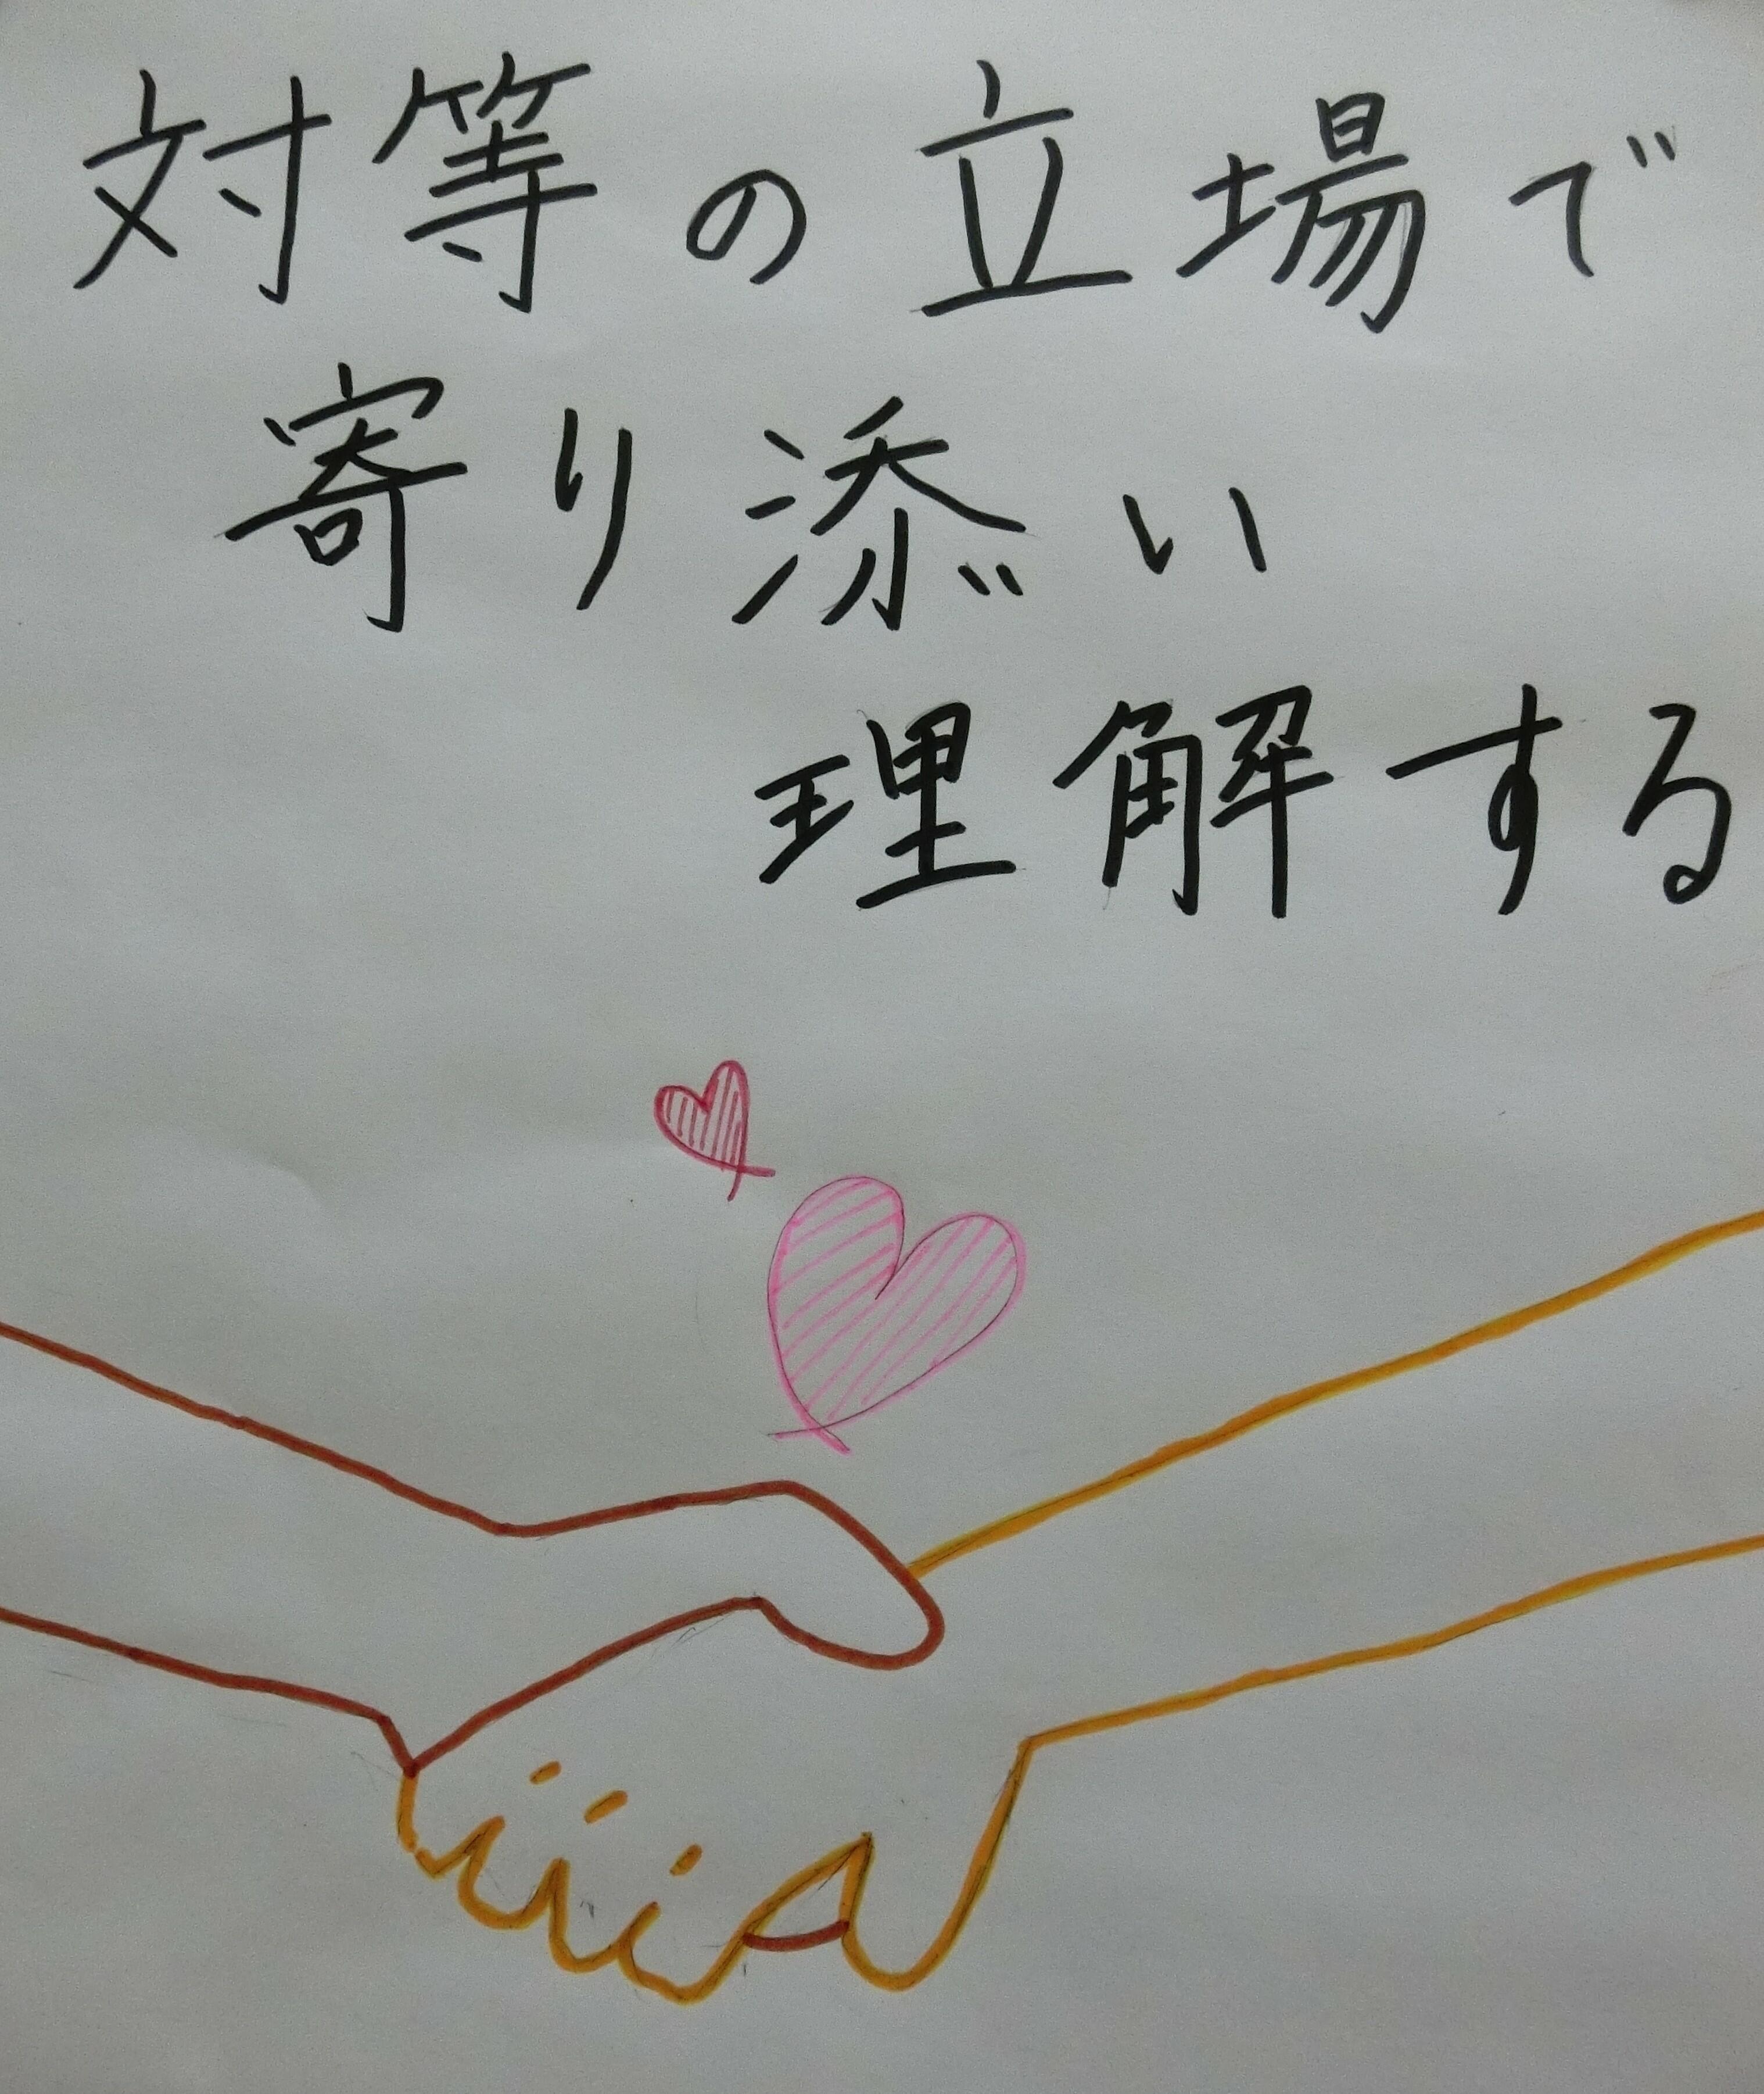 対等の立場で
寄り添い
理解する